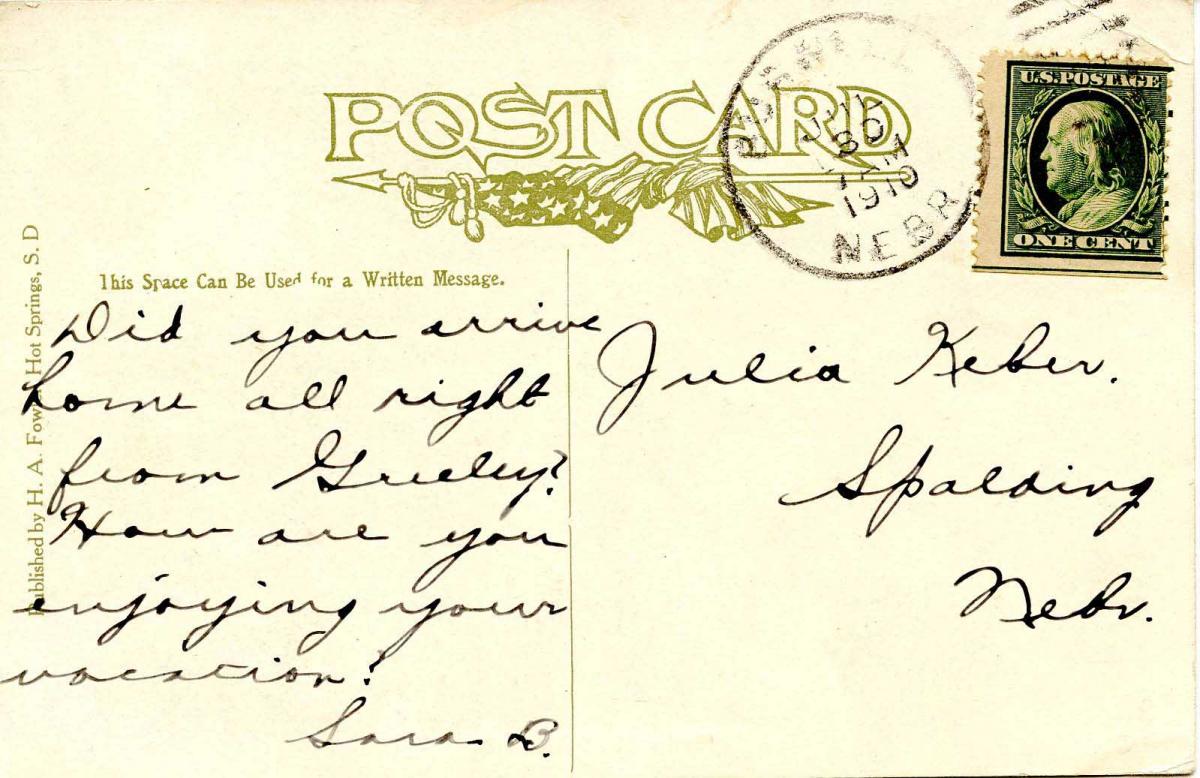 POST CARD
BURWELL
JUL
30
7 AM
1910
NEBR.
U.S. POSTAGE
ONE CENT
This Space Can Be Used for a Written Message.
Did you arrive
home all right
from Greeley?
How are you
enjoying your
vacation?
Sara B.
Julia Keber.
Spalding
Nebr.
Published by H. A. Fow Hot Springs, S. D